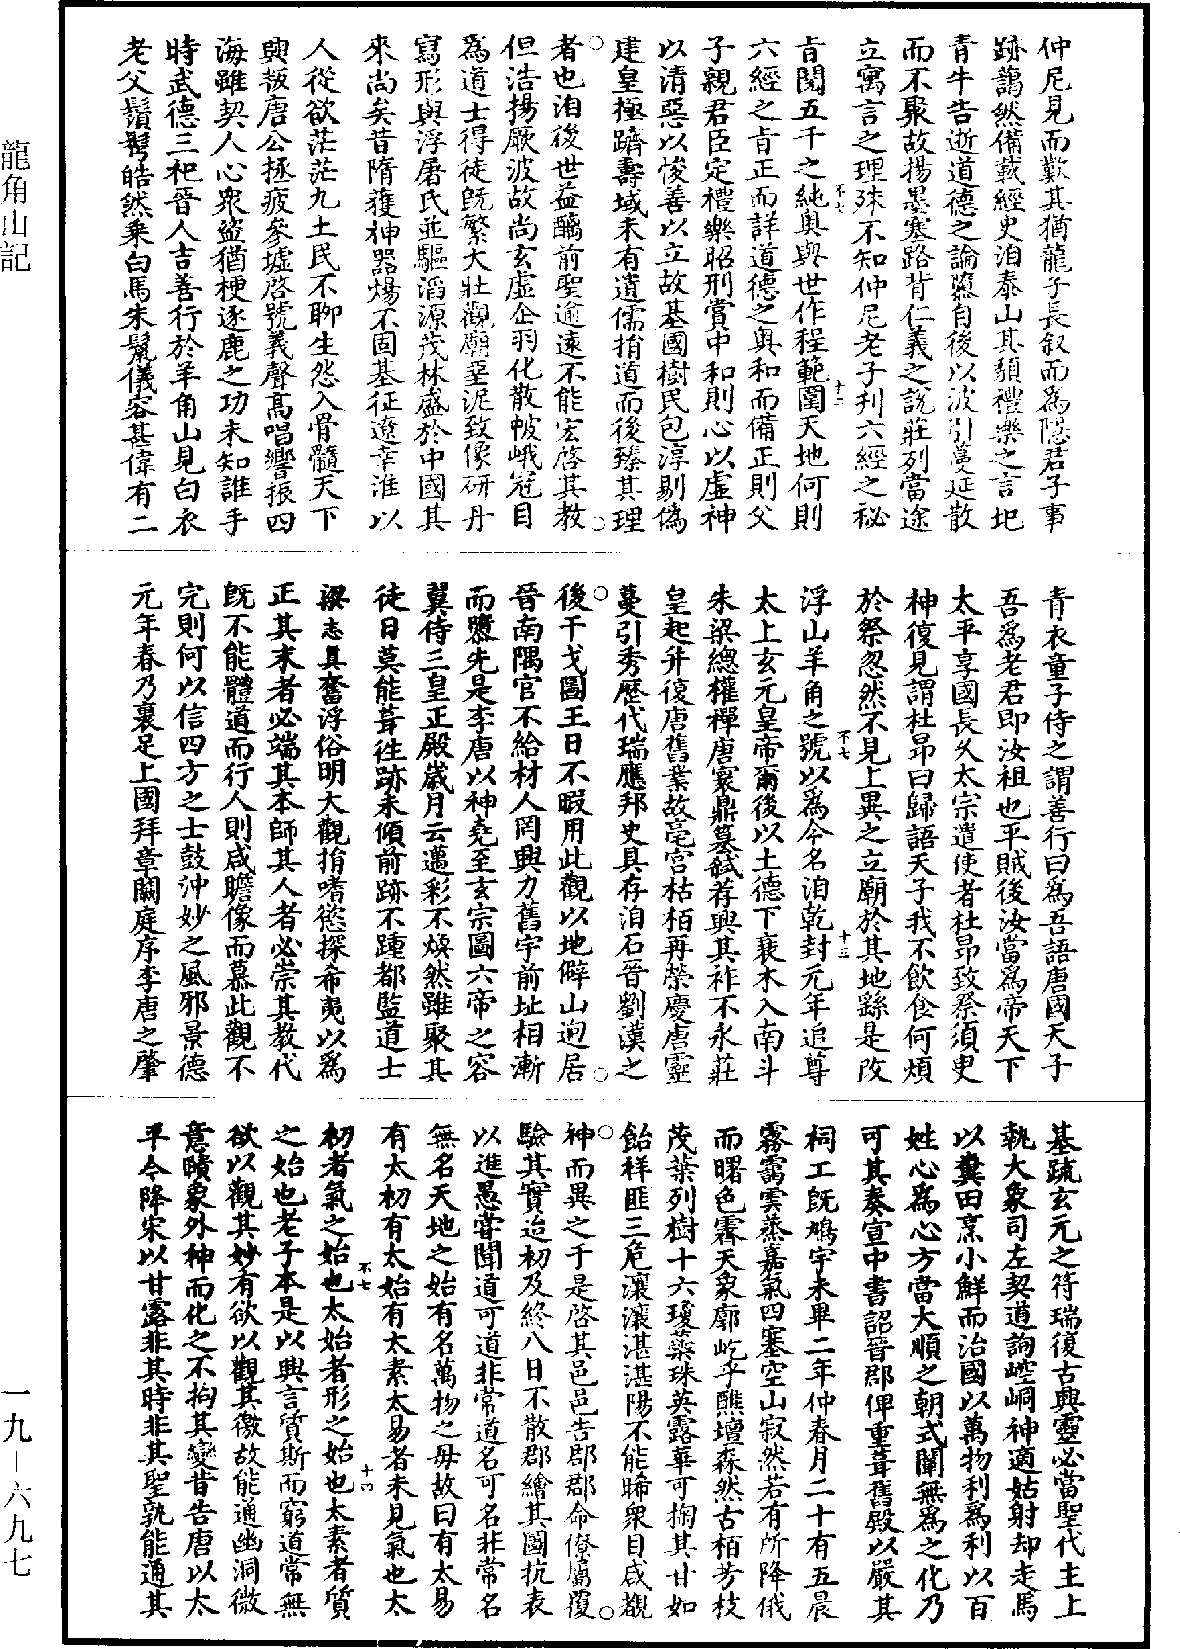 龍角山記
仲尼見而歎其猶龍子長叙而為隱君子事
跡藹然備載經史洎泰山其頹禮樂之言圯
青牛告逝道德之論隳自後以波引蔓延散
而不聚故揚墨塞路背仁義之說莊列當途
立寓言之理殊不知仲尼老子刋六經之秘
旨闡五千之純奥與世作程範圍天地何則
六經之旨正而詳道德之奥和而備正則父
子親君臣定禮樂昭刑賞中和則心以虛神
以清惡以悛善以立故基國樹民包淳剔偽
建皇極躋壽域未有遺儒捐道而後臻其理
者也洎後世益醨前聖逾遠不能宏啓其教
但浩揚厥波故尚玄虛企羽化散帔峨冠目
為道士得徒旣繁大壯觀廟堊泥致像研丹
寫形與浮屠氏並驅滔源茂林盛於中國其
來尚矣昔隋獲神器煬不固基征遼幸淮以
人從欲茫茫九土民不聊生怨入骨髓天下
興叛唐公拯疲參墟啓號義聲髙唱響振四
海雖契人心衆盜猶梗逐鹿之功未知誰手
時武德三祀晉人吉善行於羊角山見白衣
老父鬚髩皓然乗白馬朱鬛儀容甚偉有二
不七
十二
青衣童子侍之謂善行曰為吾語唐國天子
吾為老君即汝祖也平賊後汝當為帝天下
太平享國長久太宗遣使者杜昂致祭須臾
神復見謂杜昂曰歸語天子我不飲食何煩
於祭忽然不見上異之立廟於其地繇是改
浮山羊角之號以為今名洎乾封元年追尊
太上玄元皇帝爾後以土德下衰木入南斗
朱梁總權禪唐寰鼎墓弑荐興其祚不永莊
皇起升復唐舊業故亳宫枯栢再榮慶唐靈
蔓引秀歷代瑞應邦史具存洎石晉劉漢之
後干戈圖王日不暇用此觀以地僻山迥居
晉南隅官不給材人罔興力舊宇前址相漸
而隳先是李唐以神堯至玄宗圖六帝之容
翼侍三皇正殿歲月云邁彩不煥然雖聚其
徒日莫能葺徃跡未傾前跡不踵都監道士
梁志真奮浮俗明大觀捐嗜慾探希夷以為
正其末者必端其本師其人者必崇其教代
旣不能體道而行人則咸瞻像而慕此觀不
完則何以信四方之士鼓沖妙之風邪景德
元年春乃裹足上國拜章闕庭序李唐之肇
不七
十三
基疏玄元之符瑞復古興靈必當聖代主上
執大象司左契道詢崆峒神適姑射却走馬
以糞田烹小鮮而治國以萬物利為利以百
姓心為心方當大順之朝式闡無為之化乃
可其奏宣中書詔晉郡俾重葺舊殿以嚴其
祠工旣鳩宇未畢二年仲春月二十有五晨
霧靄雲蒸嘉氣四塞空山寂然若有所降俄
而曙色霽天象廓屹乎醮壇森然古栢芳枝
茂葉列樹十六瓊蘂珠英露華可掬其甘如
飴祥匪三危瀼瀼湛湛陽不能晞衆目咸覩
神而異之于是啓其邑邑告郡郡命僚屬覆
驗其實迨初及終八日不散郡繪其圖抗表
以進愚嘗聞道可道非常道名可名非常名
無名天地之始有名萬物之母故曰有太易
有太初有太始有太素太易者未見氣也太
初者氣之始也太始者形之始也太素者質
之始也老子本是以興言質斯而窮道常無
欲以觀其妙有欲以觀其徼故能通幽洞微
意賾象外神而化之不拘其變昔告唐以太
平今降宋以甘露非其時非其聖孰能通其
不七
十四
一九－六九七